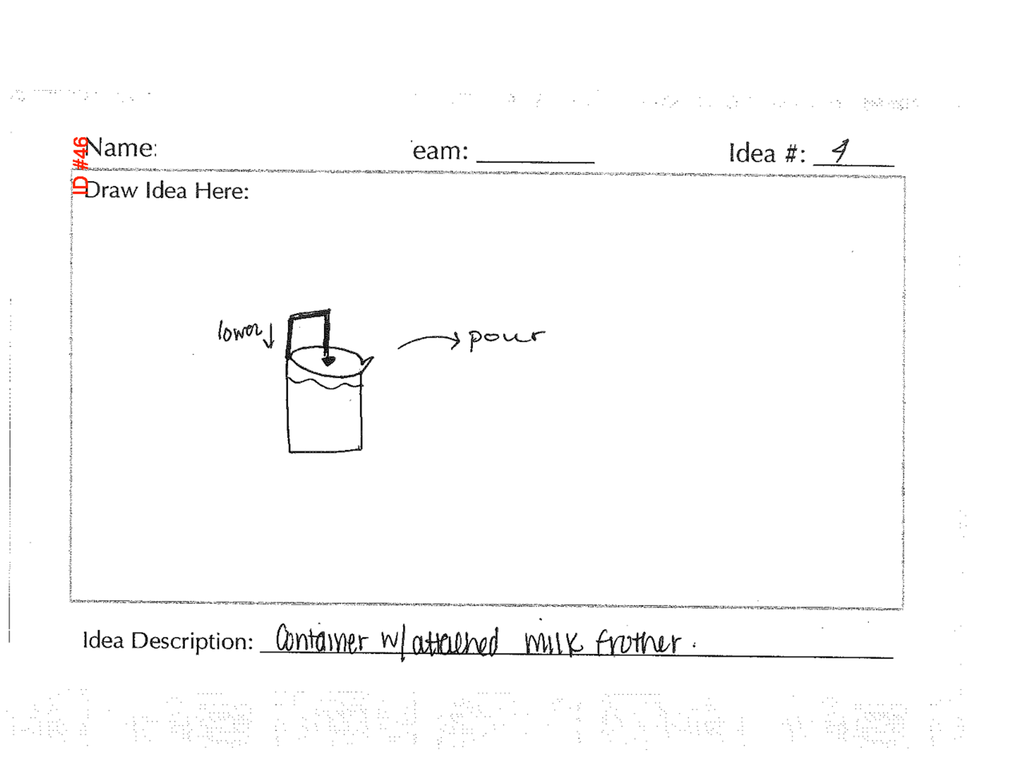 ID #46
Name: eam: Idea #: 4
Draw Idea Here:
lower
pour
Idea Description: Container w/ attached milk frother.